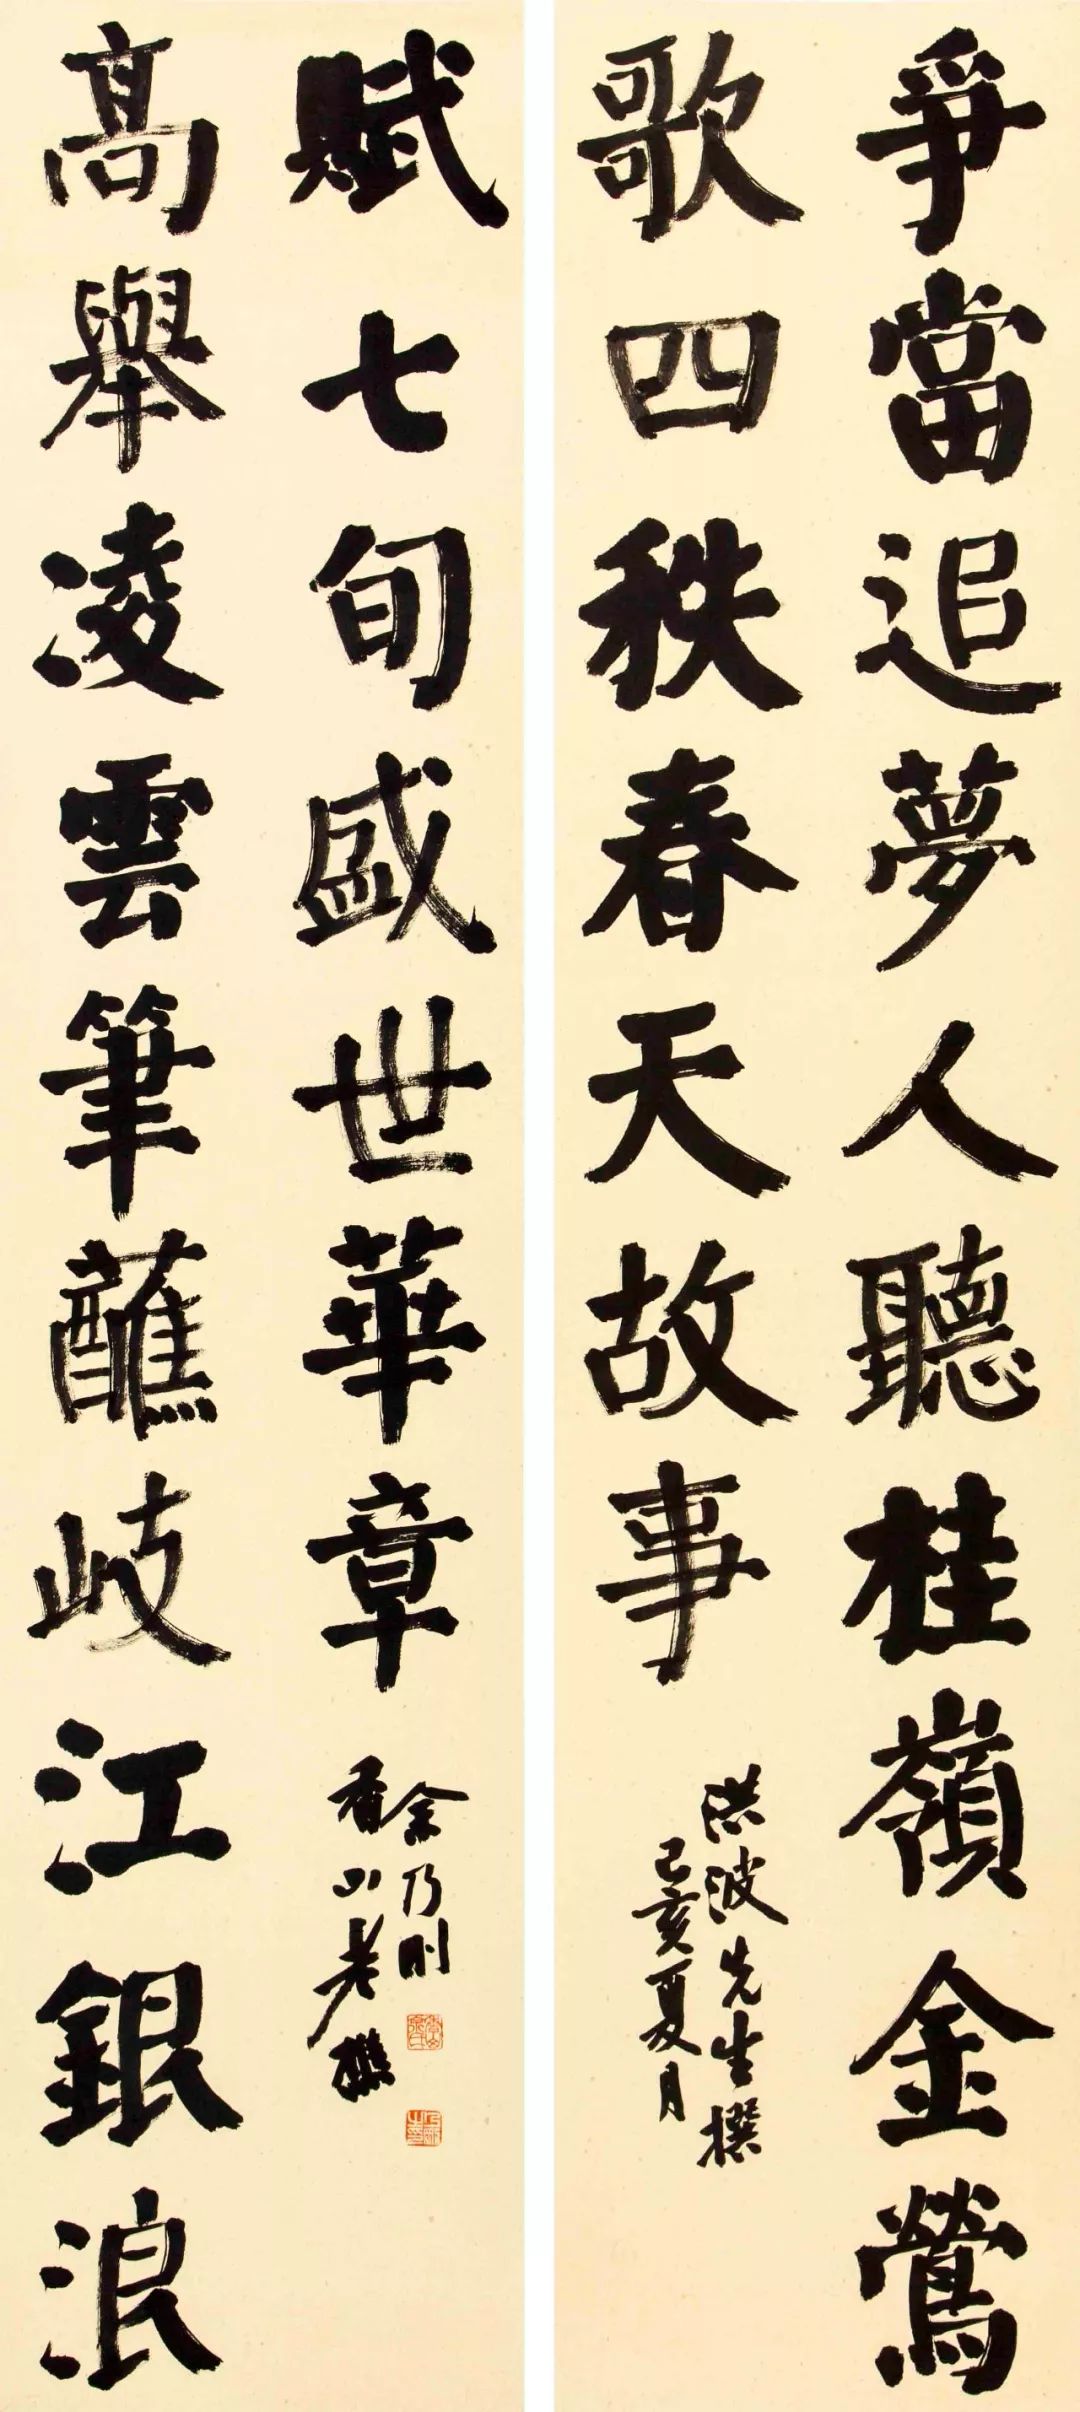 爭當追夢人聽桂嶺金鶯
歌四秩春天故事
洪波先生撰
己亥夏月
高舉凌雲筆蘸岐江銀浪
賦七旬盛世華章
余乃刚
香山老樵